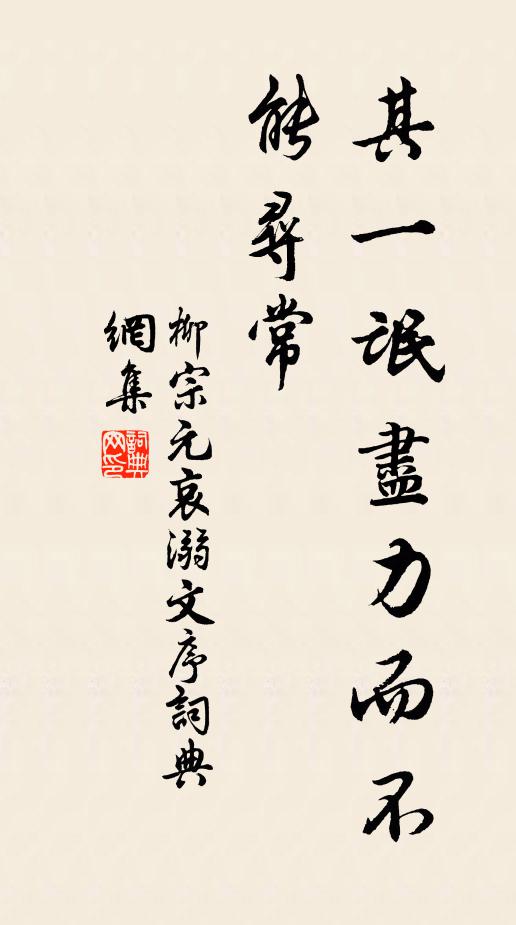 其一氓盡力而不
能尋常
柳宗元哀溺文序詞典
網集
詞典
网印